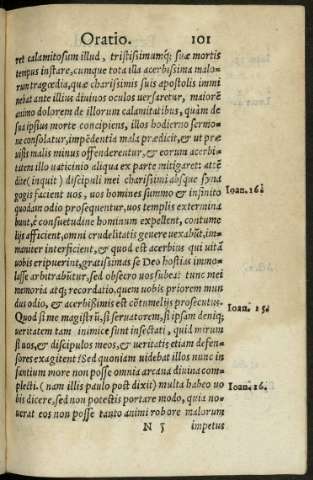 Oratio. 101
ret calamitosum illud, tristissimamq́; suæ mortis
tempus instare, cumque tota illa acerbissima malo-
rum tragœdia, quæ charissimis suis apostolis immi
nebat ante illius diuinos oculos uersaretur, maiorē
animo dolorem de illorum calamitatibus, quàm de
sua ipsius morte concipiens, illos hodierno sermo-
ne consolatur, impēdentia mala prædicit, & ut præ
uisis malis minus offenderentur, & eorum acerbi-
tatem illo uaticinio aliqua ex parte mitigaret: attē
dite (inquit) discipuli mei charissimi absque syna
gogis facient uos, uos homines summo & infinito
quodam odio prosequentur, uos templis extermina
bunt, è consuetudine hominum expellent, contume
lijs afficient, omni crudelitatis genere uexabūt, im-
maniter interficient, & quod est acerbius qui uitā
uobis eripuerint, gratissimas se Deo hostias immo-
lasse arbitrabūtur, sed obsecro uos subeat tunc mei
memoria atq; recordatio, quem uobis priorem mun
dus odio, & acerbißimis est cōtumelijs prosecutus.
Quod si me magistrū, si seruatorem, si ipsam deniq;
ueritatem tam inimicè sunt insectati, quid mirum
si uos, & discipulos meos, & ueritatis etiam defen-
sores exagitent? Sed quoniam uidebat illos nunc in
fantium more non posse omnia arcana diuina com-
plecti. (nam illis paulo pōst dixit) multa habeo uo
bis dicere, sed non potestis portare modo, quia no-
uerat eos non posse tanto animi robore malorum
N 5 impetus
Ioan. 16.
Ioan. 15.
Ioan. 16.